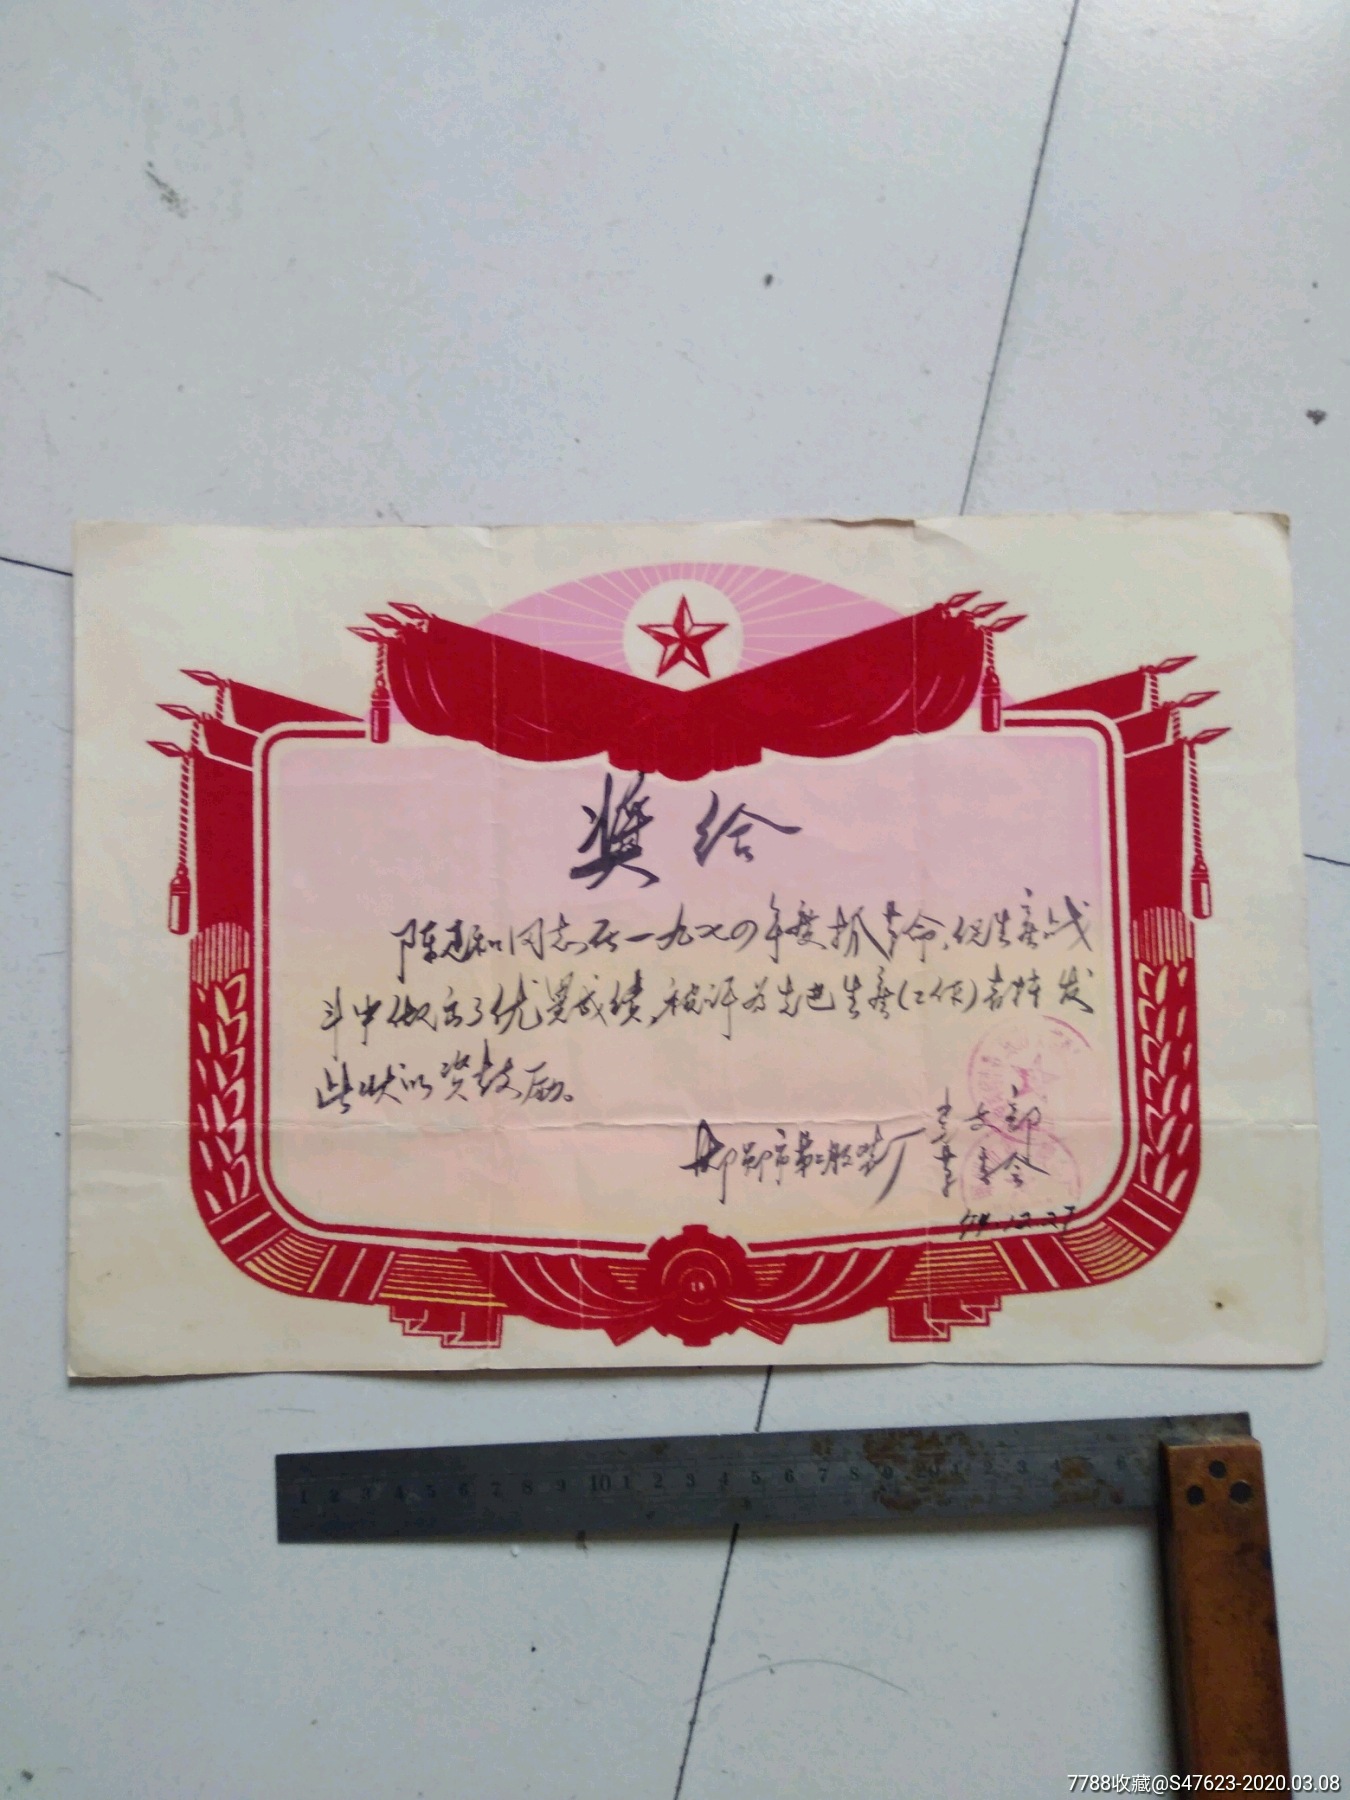 奖给
陈建和同志在一九七四年度抓革命,促生产战
斗中做出了优異成绩,被评为先进生产(工作)者特发
此状以资鼓励。
邯郸市第二服装厂
支部
委会
74.12.27
1 2 3 4 5 6 7 8 9 10 1 2 3 4 5 6 7 8 9
7788收藏@S47623-2020.03.08